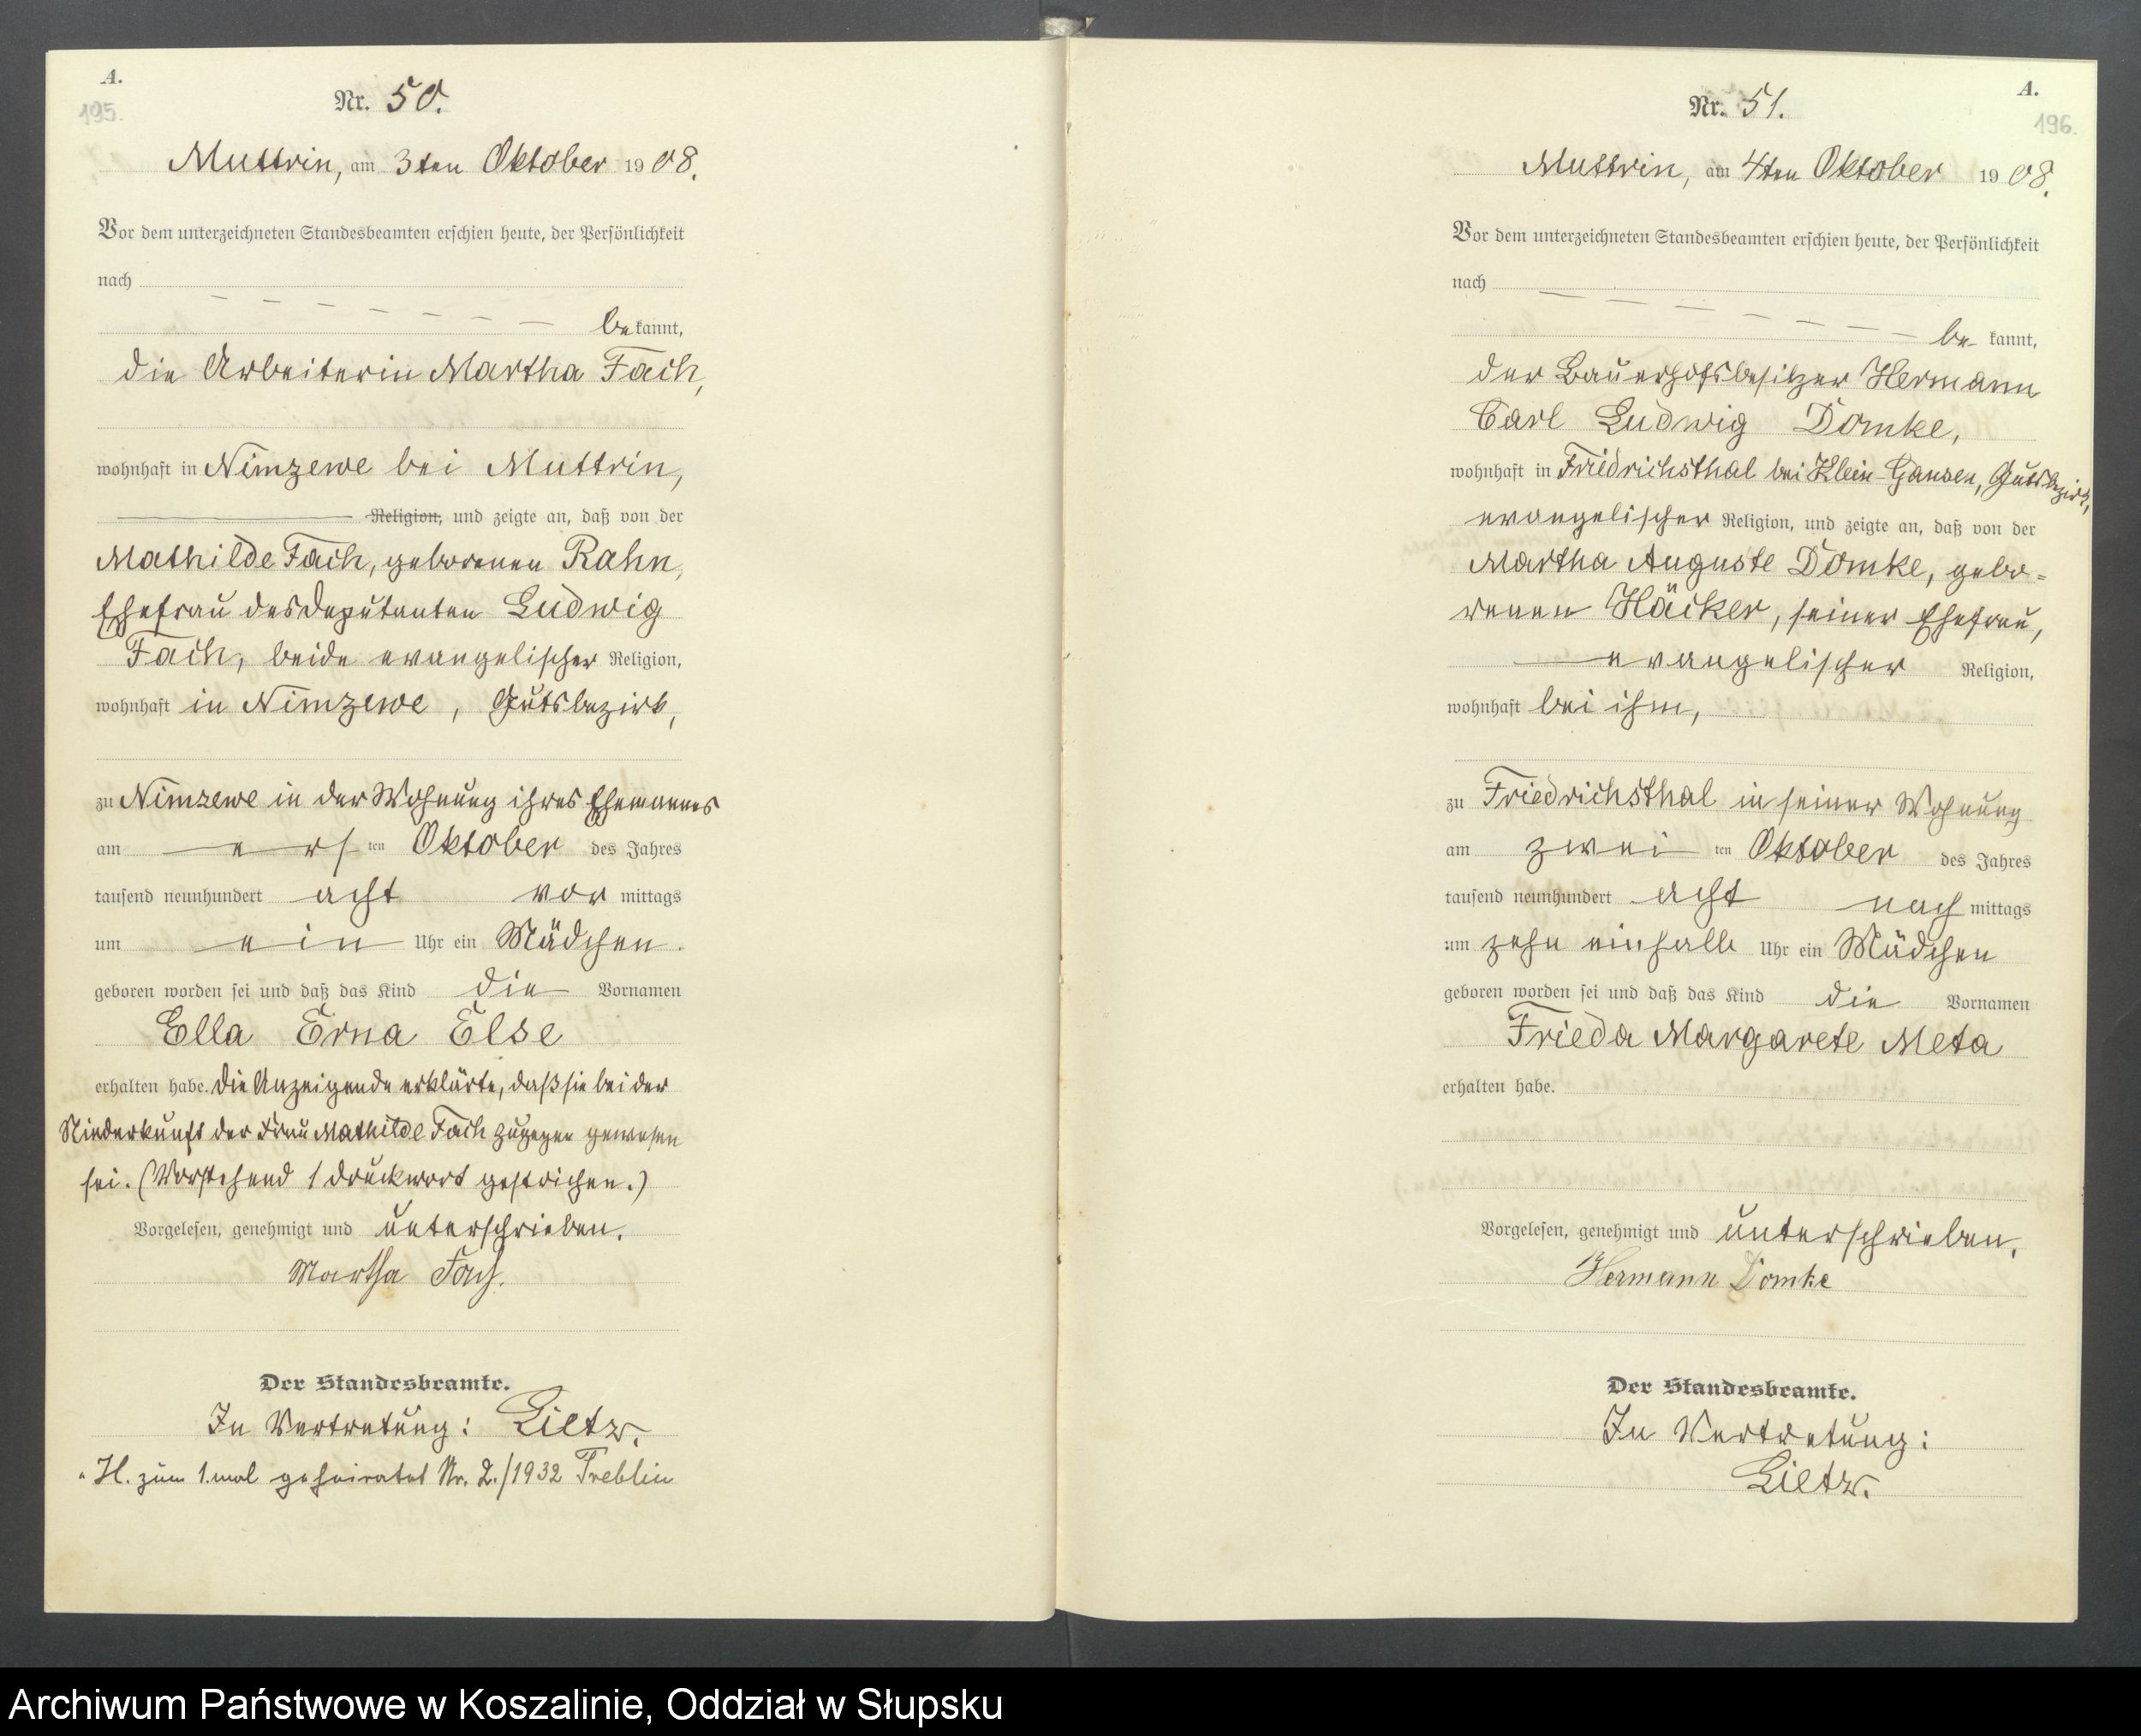 A.
195.
Nr. 50.
Muttrin, am 3ten Oktober 1908.
Vor dem unterzeichneten Standesbeamten erschien heute, der Persönlichkeit
nach
bekannt,
die Arbeiterin Martha Fach,
wohnhaft in Nimzewe bei Muttrin,
Religion, und zeigte an, daß von der
Mathilde Fach, geborenen Rahn,
Ehefrau des Deputanten Ludwig
Fach, beide evangelischer Religion,
wohnhaft in Nimzewe, Gutsbezirk,
zu Nimzewe in der Wohnung ihres Ehemannes
am ersten Oktober des Jahres
tausend neunhundert acht vor mittags
um ein Uhr ein Mädchen.
geboren worden sei und daß das Kind die Vornamen
Ella Erna Else
erhalten habe. Die Anzeigende erklärte, daß sie bei der
Niederkunft der Frau Mathilde Fach zugegen gewesen
sei. (Vorstehend 1 Druckwort gestrichen.)
Vorgelesen, genehmigt und unterschrieben.
Martha Fach.
Der Standesbeamte.
In Vertretung: Lietz.
H. zum 1. mal geheiratet Nr. 2./1932 Treblin
A.
196.
Nr. 51.
Muttrin, am 4ten Oktober 1908.
Vor dem unterzeichneten Standesbeamten erschien heute, der Persönlichkeit
nach
be- kannt,
der Bauerhofsbesitzer Hermann
Carl Ludwig Domke,
wohnhaft in Friedrichsthal bei Klein-Gansen, Gutsbezirk,
evangelischer Religion, und zeigte an, daß von der
Martha Auguste Domke, gebo=
renen Häcker, seiner Ehefrau,
evangelischer Religion,
wohnhaft bei ihm,
zu Friedrichsthal in seiner Wohnung
am zwei ten Oktober des Jahres
tausend neunhundert acht nach mittags
um zehn einhalb Uhr ein Mädchen
geboren worden sei und daß das Kind die Vornamen
Frieda Margarete Meta
erhalten habe.
Vorgelesen, genehmigt und unterschrieben.
Hermann Domke
Der Standesbeamte.
In Vertretung:
Lietz.
Archiwum Państwowe w Koszalinie, Oddział w Słupsku